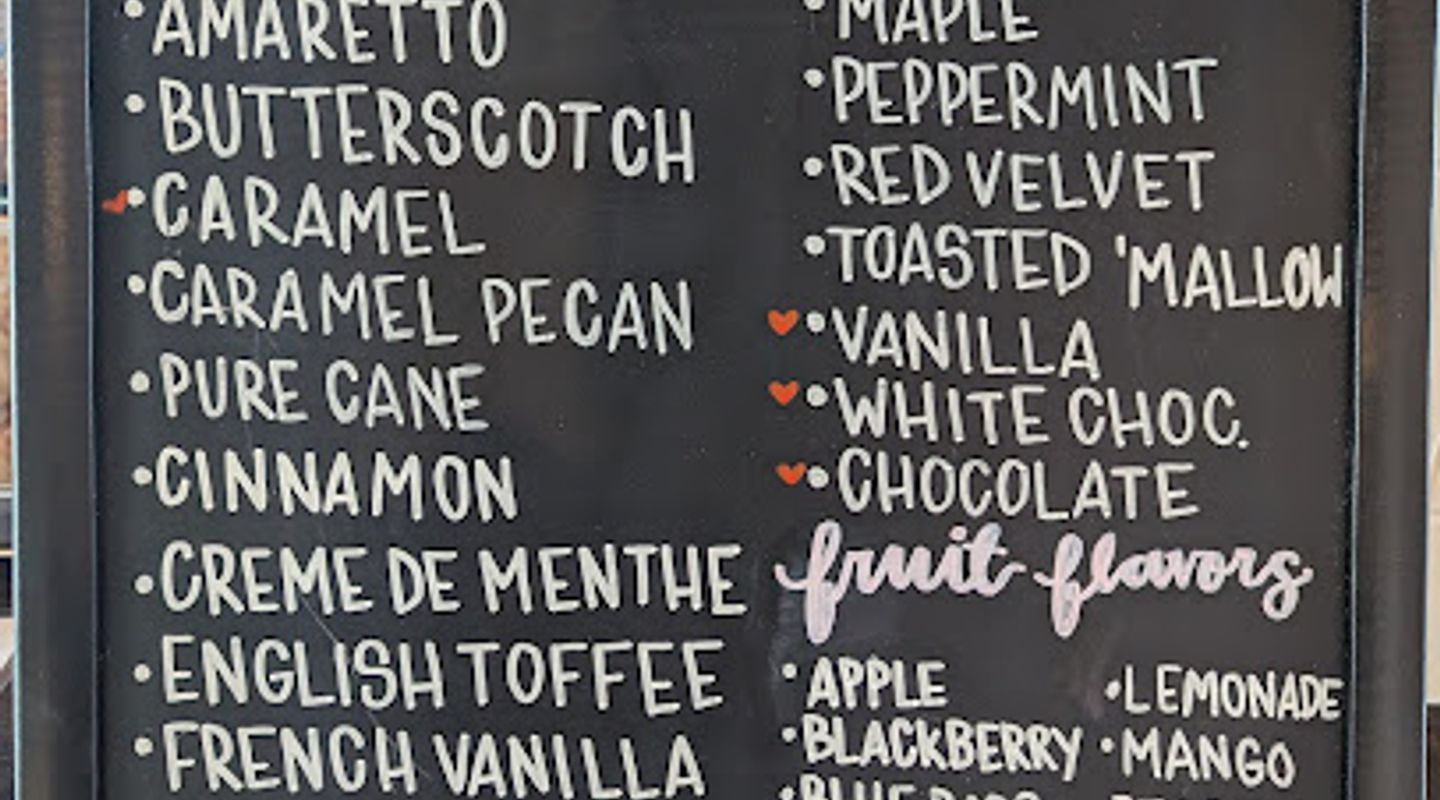 • AMARETTO
• BUTTERSCOTCH
• CARAMEL
• CARAMEL PECAN
• PURE CANE
• CINNAMON
• CREME DE MENTHE
• ENGLISH TOFFEE
• FRENCH VANILLA
• MAPLE
• PEPPERMINT
• RED VELVET
• TOASTED 'MALLOW
• VANILLA
• WHITE CHOC.
• CHOCOLATE
fruit flavors
• APPLE
• BLACKBERRY
• LEMONADE
• MANGO